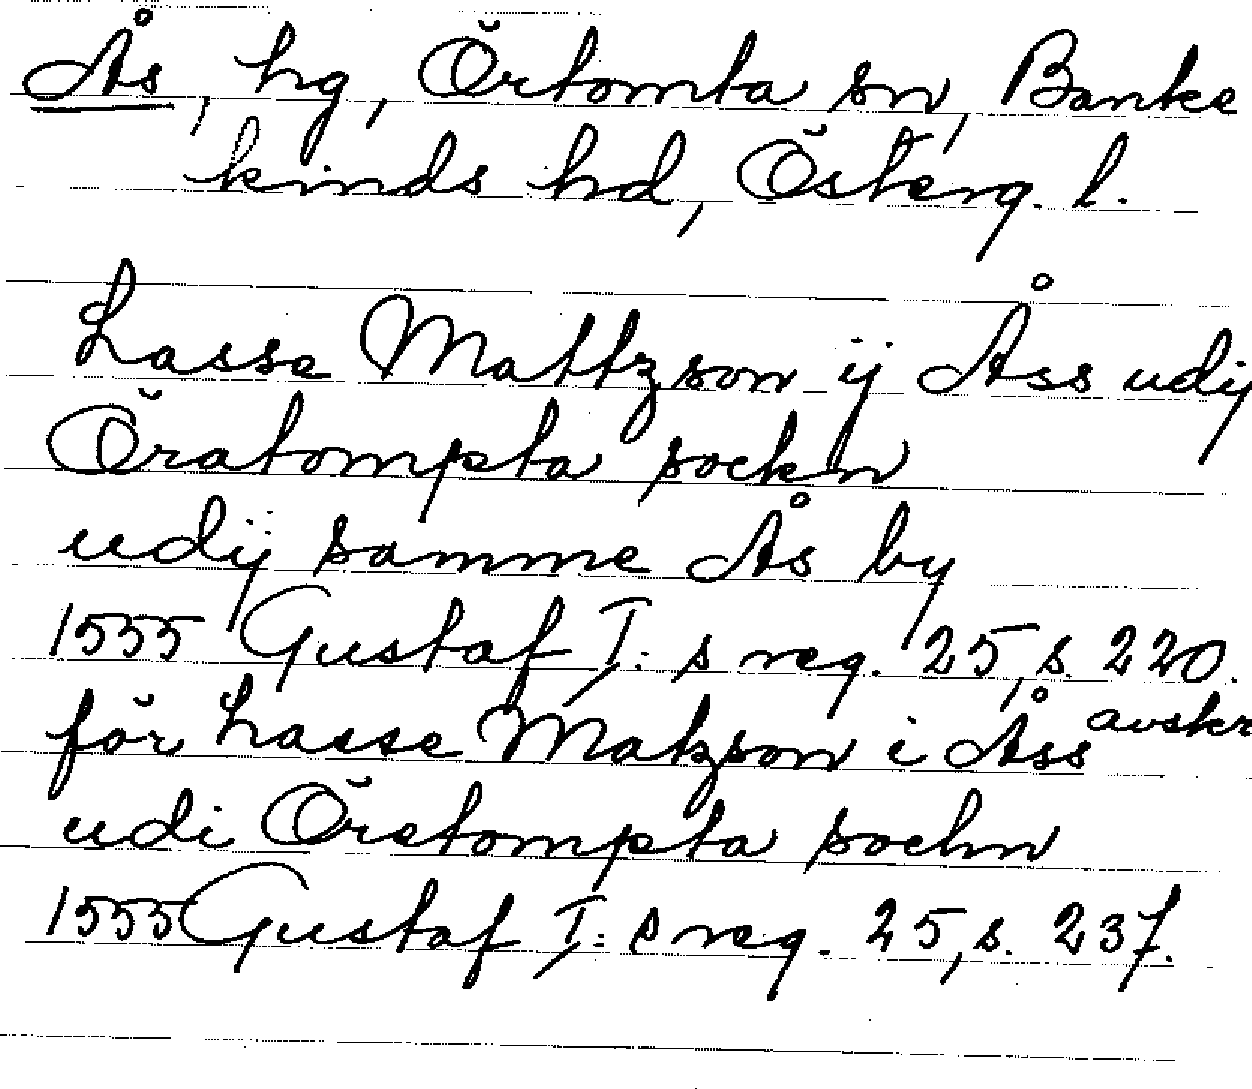 Ås, hg, Örtomta sn, Banke
kinds hd, Österg. l.
Lasse Mattzson ij Åss udij
Öratompta sockn
udij samme Ås by
1555 Gustaf I: s reg. 25, s. 220.
för Lasse Matzson i Åss avskr
udi Öretompta sochn
1555 Gustaf I: s reg. 25, s. 237.